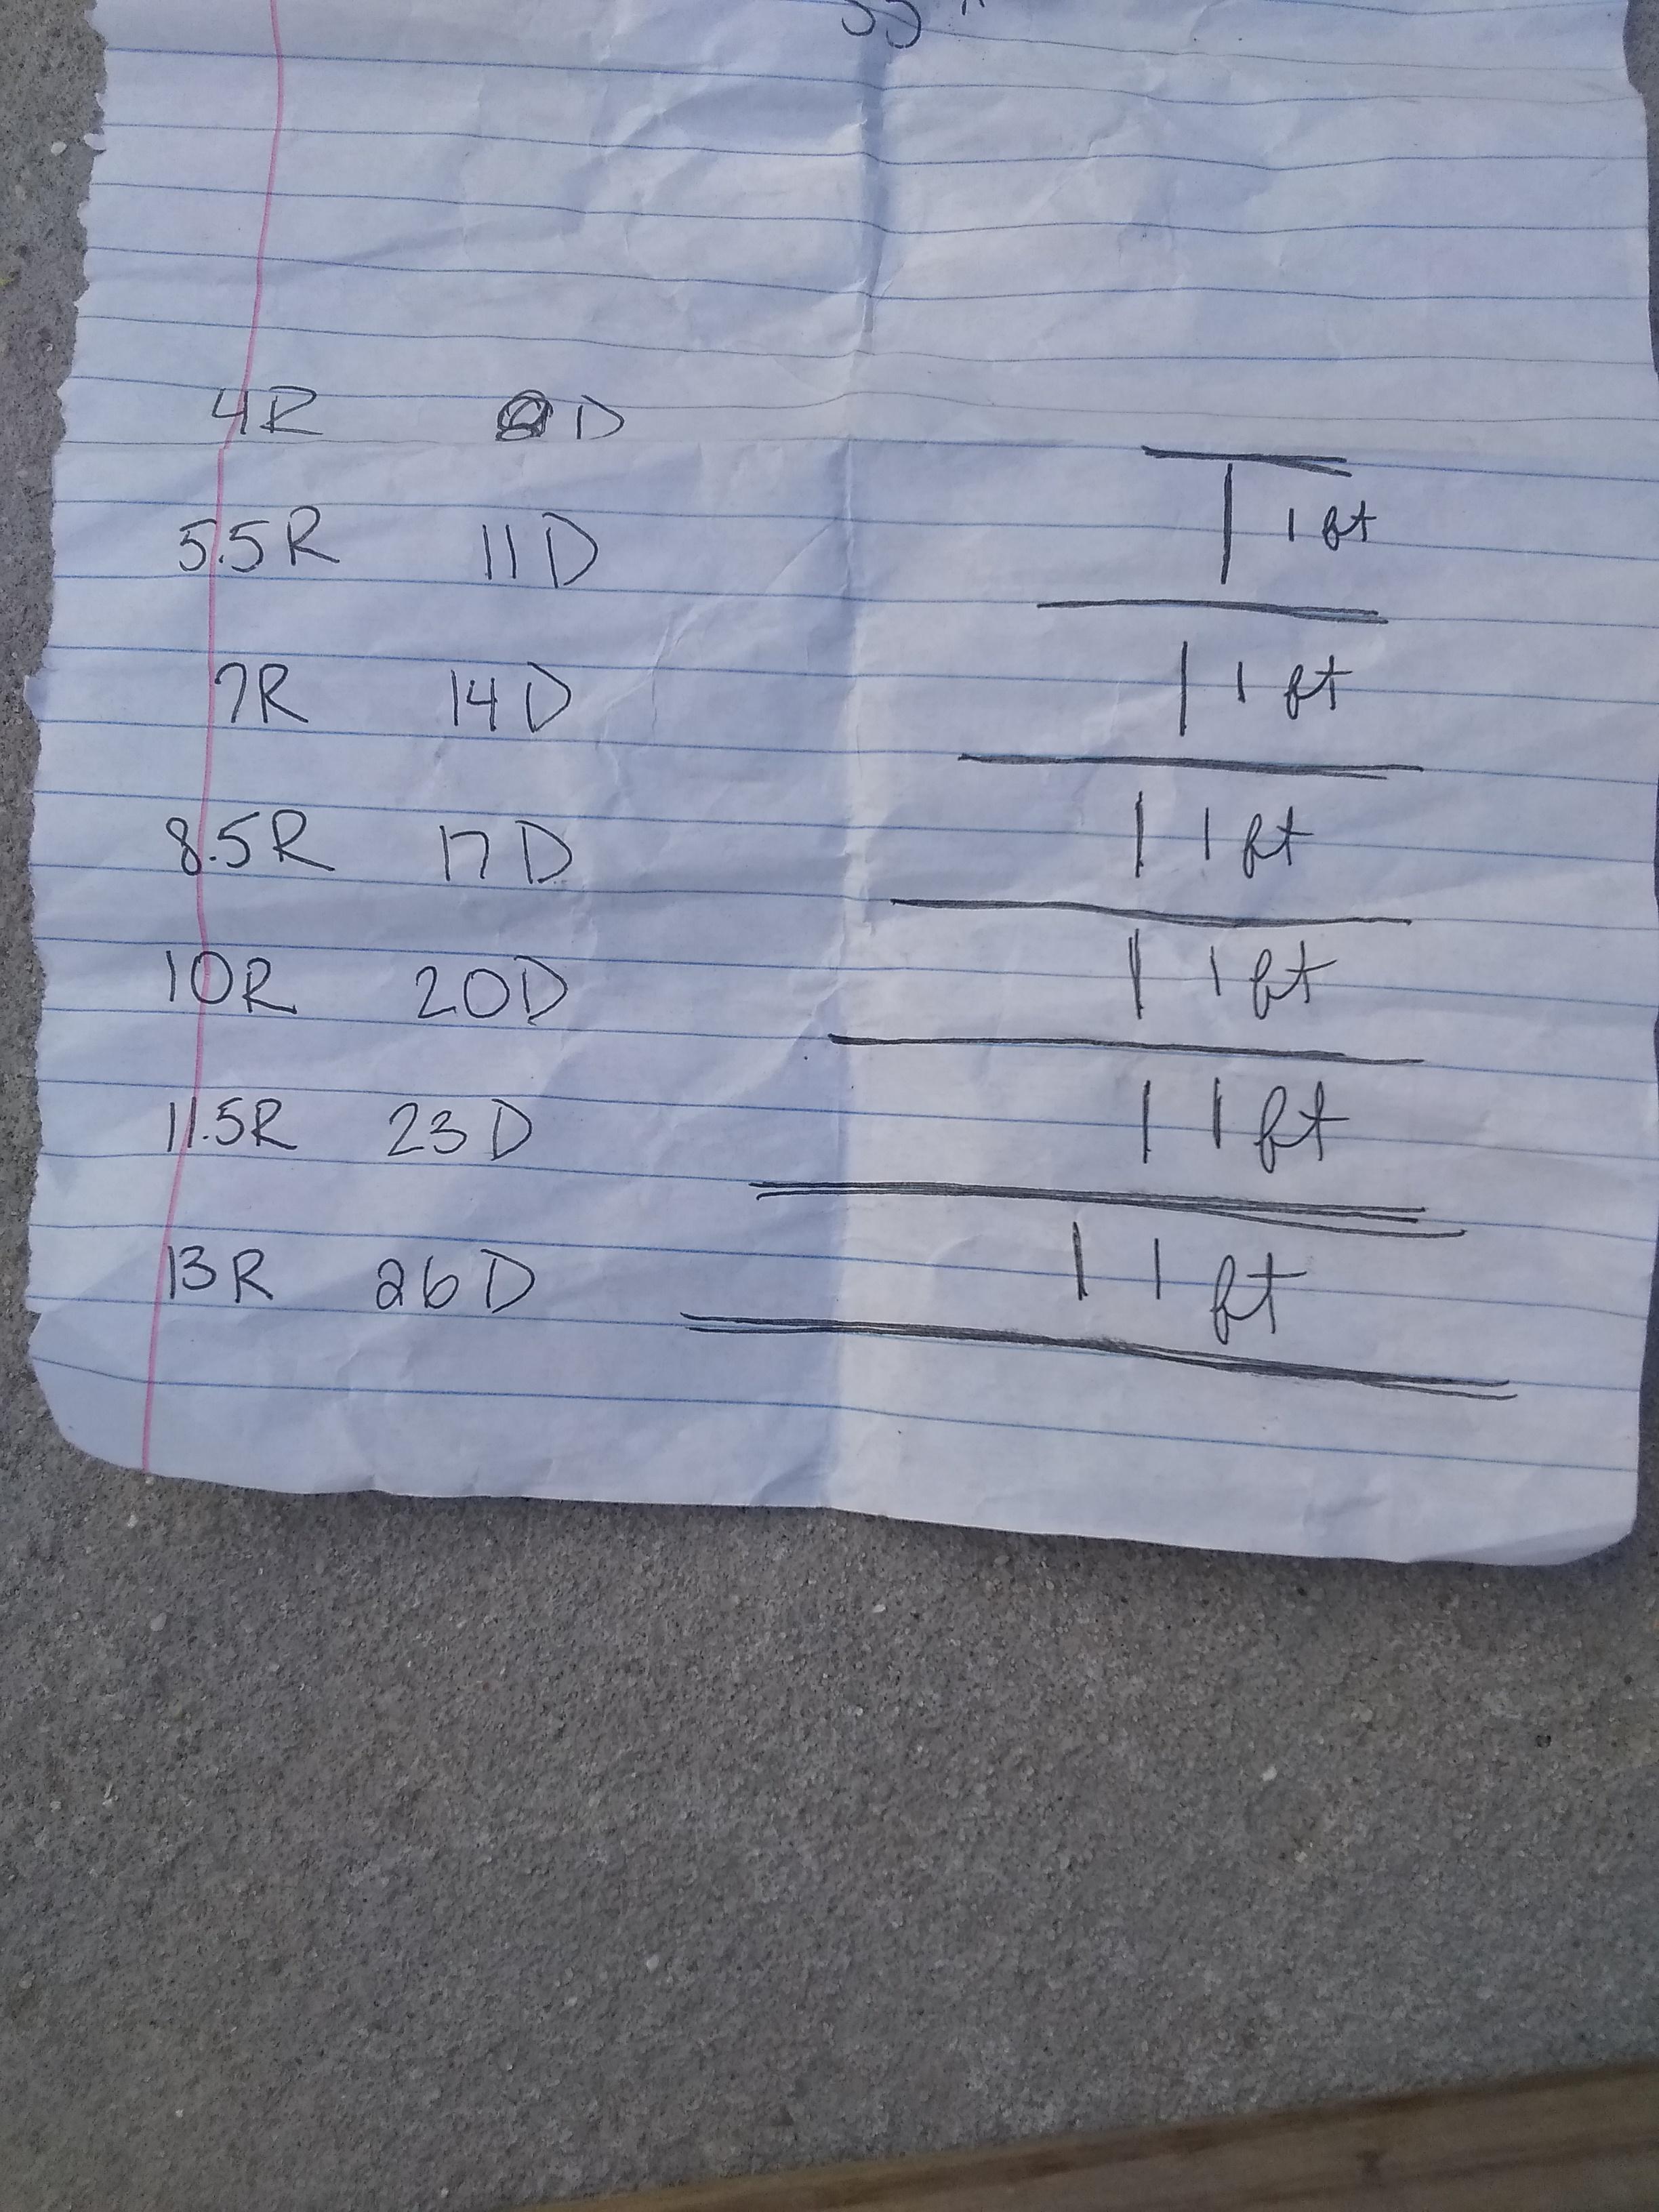 4R 8D
5.5R 11D 1 ft
7R 14D 1 ft
8.5R 17D 1 ft
10R 20D 1 ft
11.5R 23D 1 ft
13R 26D 1 ft